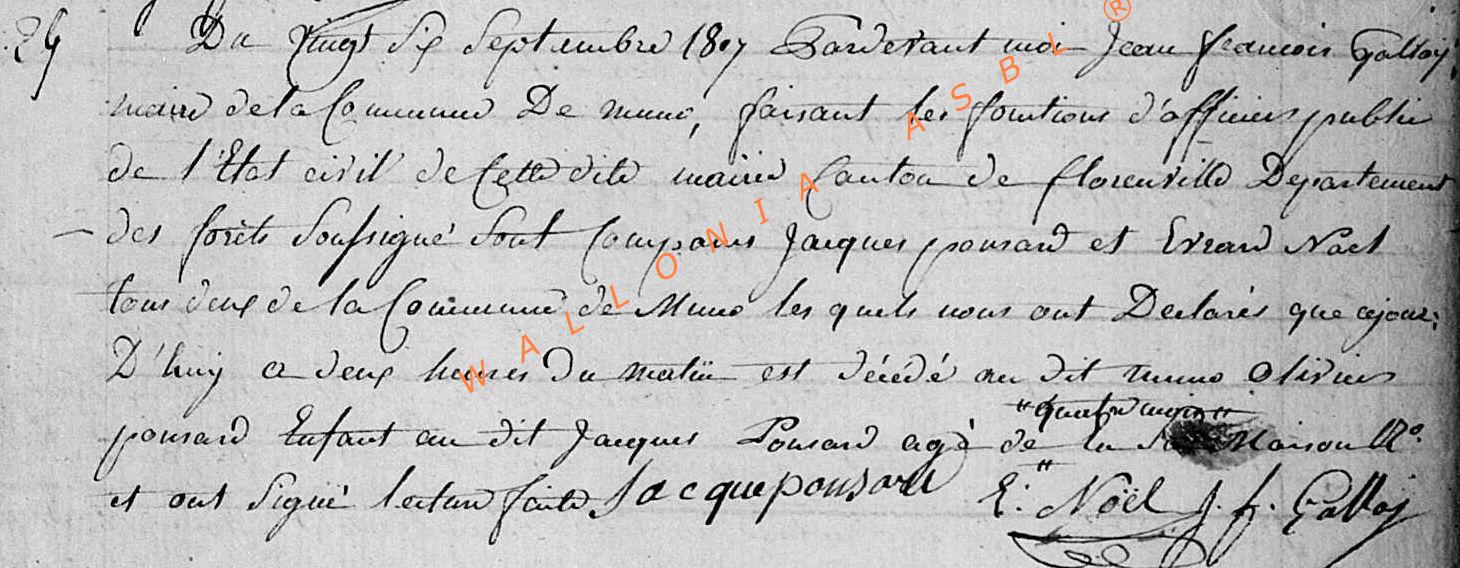 29 Du Vingt Six Septembre 1807 Pardevant moi Jean francois Galloÿ
maire de la Commune De muno, faisant les fontions d'officier public
de l'Etat civil de Cette dite mairie Canton de florenville Departement
des forêts Soussigné Sont Comparus Jacques ponsard et Evrard Noel
tous deux de la Commune de Muno les quels nous ont Declarés que cejour:
D'huÿ a deux heures Du matin est décédé au dit muno Olivier
"quatre mois"
ponsard Enfant au dit Jacques Ponsard agé de " la Maison N°.
et ont Signé lecture faite Jacque ponsard E. Noël J. f. Galloÿ
WALLONIA ASBL ®